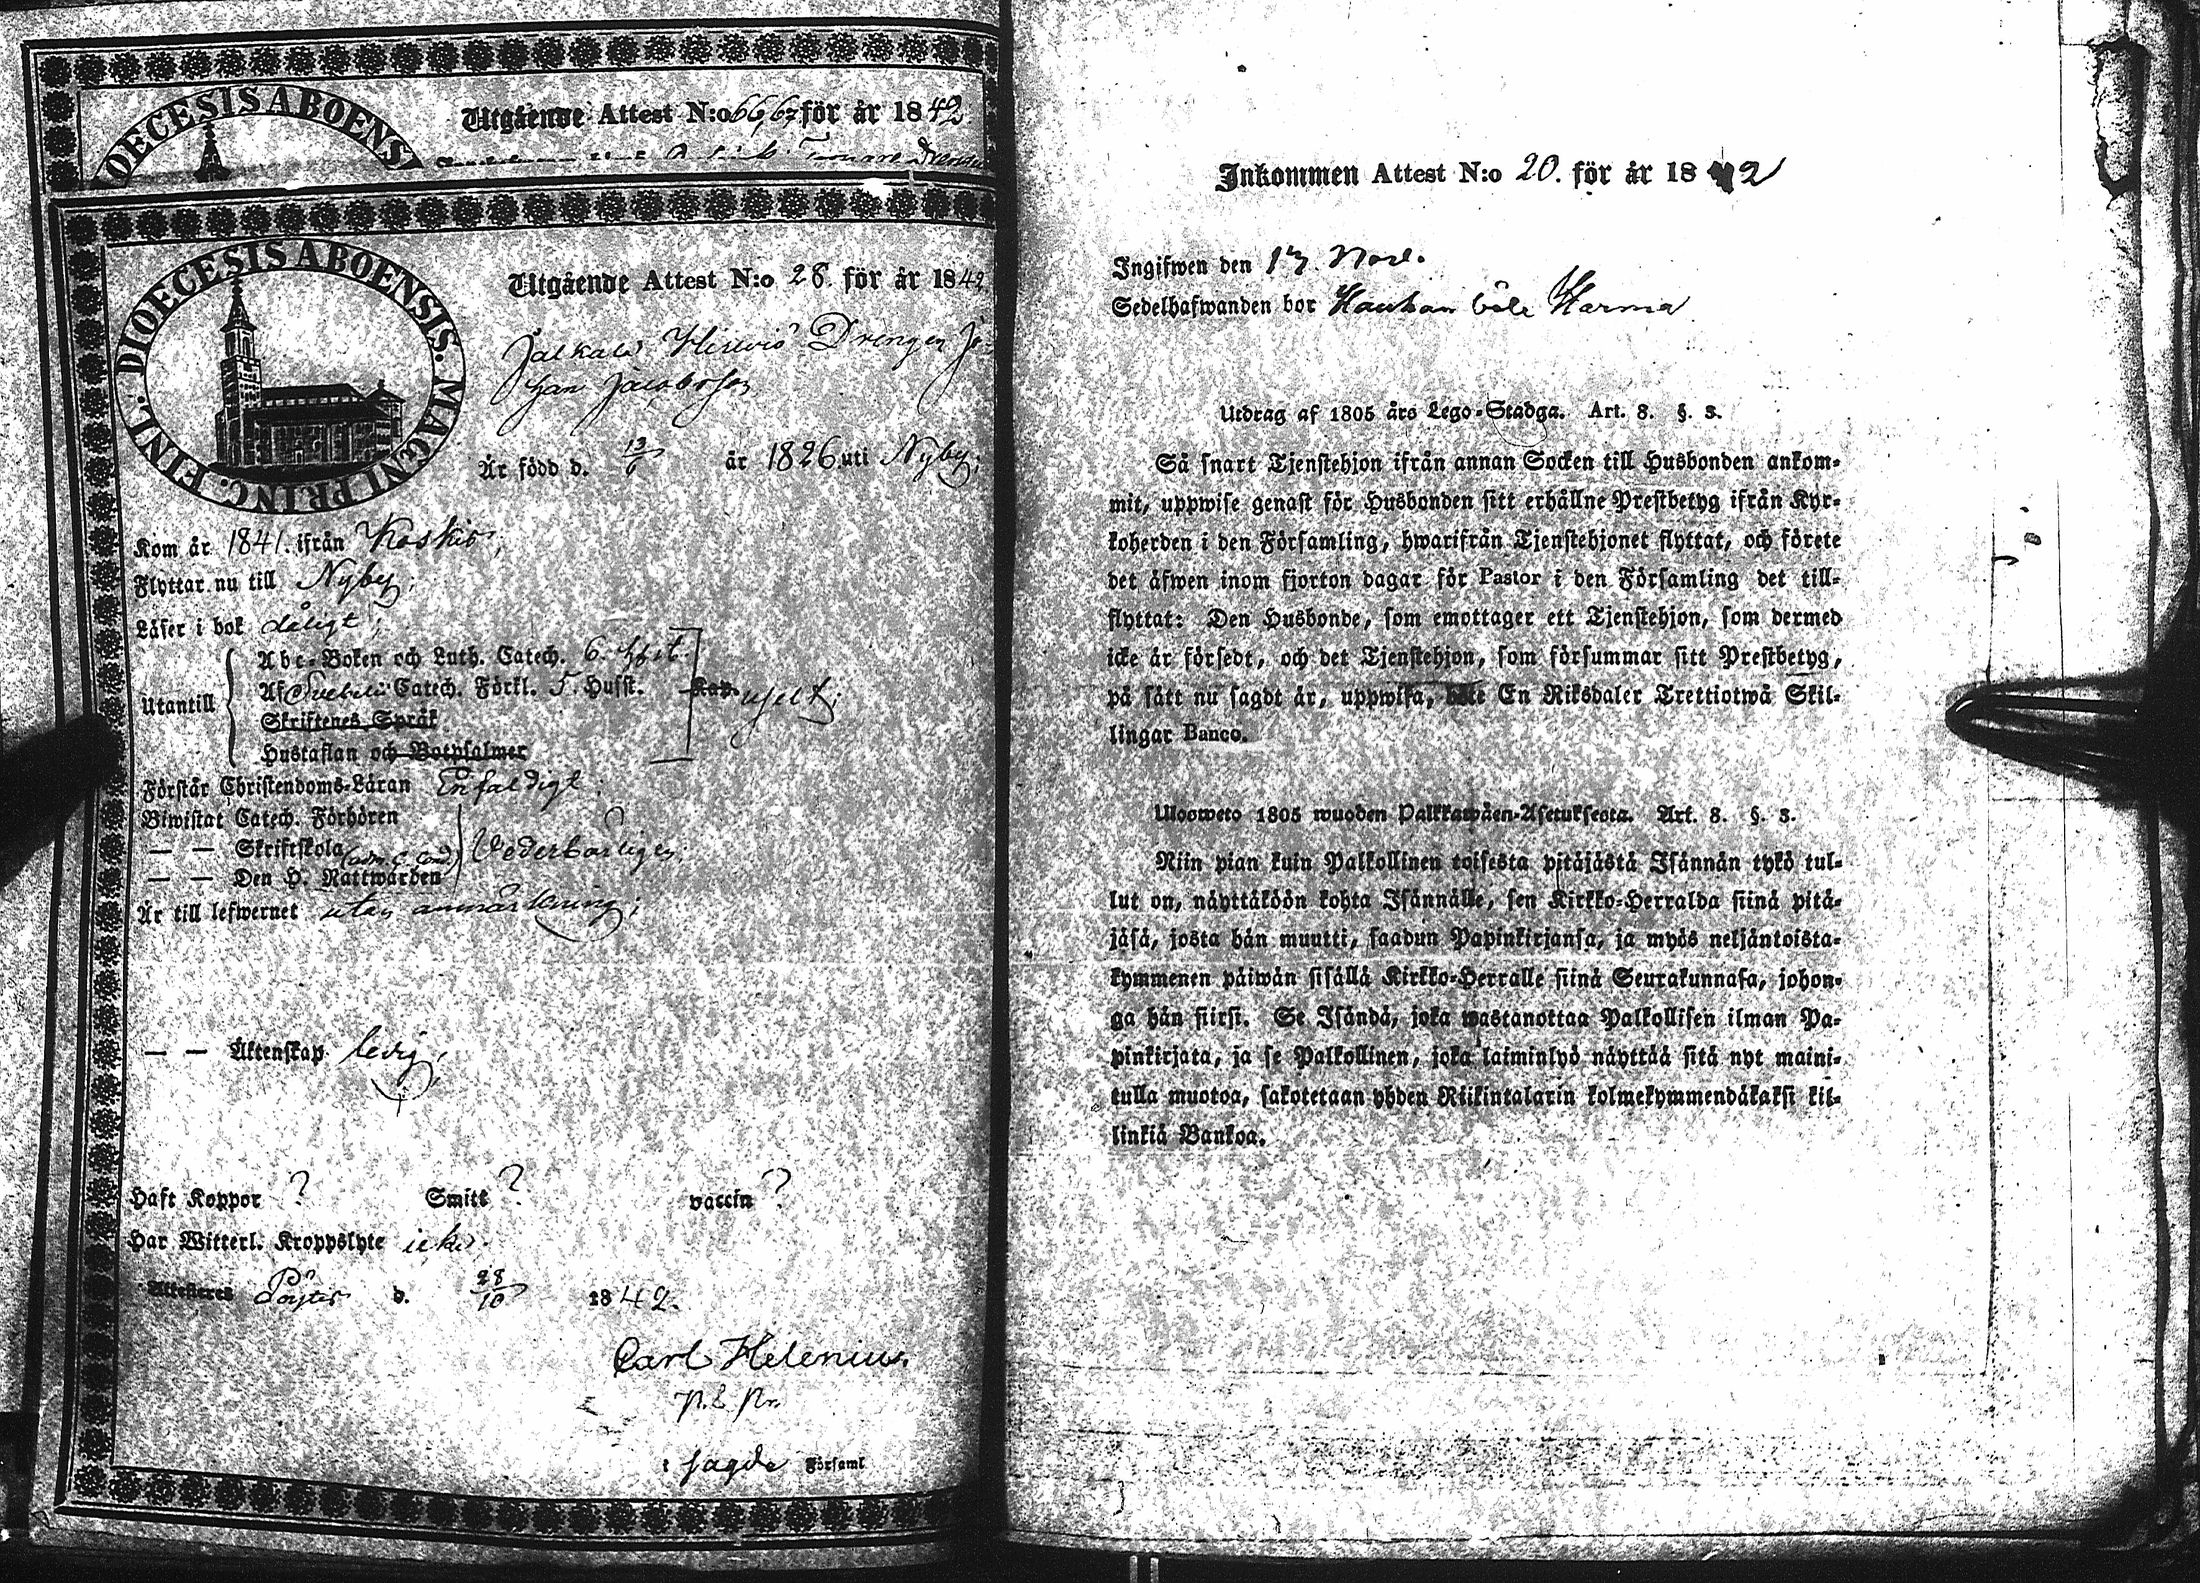 DIOECESIS ABOENSI
Utgående Attest N:o 66,67 för år 1842
DIOECESIS ABOENSIS. MAGNI PRINC. FINL.
Utgående Attest N:o 28. för år 1842
Drengen Jo-
han Jacobsson
Är född d. 13/6 år 1826 uti Nyby;
Kom år 1841. ifrån Koskis;
Flyttar nu till Nyby;
Läser i bok dåligt;
Utantill
Abc-Boken och Luth. Catech. 6. hfst.
Af Svebelii Catech. Förkl. 5. Hufst. Kap.
Skriftenes Språk
Hustaflan och Botpsalmer
Förstår Christendoms-Läran Enfaldigt;
Biwistat Catech. Förhören
— — Skriftskola (adm. S. Coen.) Vederbörligen;
— — Den H. Nattwarden
Är till lefwernet utan anmärkning;
— — Äktenskap ledig;
Haft Koppor ? Smitt ? vaccin ?
Har Witterl. Kroppslyte icke.
Attesteres Pöytis d. 28/10 1842.
Carl Helenius.
i sagde Församl
Inkommen Attest N:o 20. för år 1842
Ingifwen den 17. Nov.
Sedelhafwanden bor
Utdrag af 1805 års Lego-Stadga. Art. 8. §. 3.
Så snart Tjenstehjon ifrån annan Socken till Husbonden ankom-
mit, uppwise genast för Husbonden sitt erhållne Prestbetyg ifrån Kyr-
koherden i den Församling, hwarifrån Tjenstehjonet flyttat, och förete
det äfwen inom fjorton dagar för Pastor i den Församling det till-
flyttat: Den Husbonde, som emottager ett Tjenstehjon, som dermed
icke är försedt, och det Tjenstehjon, som försummar sitt Prestbetyg,
på sätt nu sagdt är, uppwisa, böte En Riksdaler Trettiotwå Skil-
lingar Banco.
Ulosweto 1805 wuoden Palkkawäen-Asetuksesta. Art. 8. §. 3.
Niin pian kuin Palkollinen toisesta pitäjästä Isännän tykö tul-
lut on, näyttäköön kohta Isännälle, sen Kirkko-Herralda siinä pitä-
jäsä, josta hän muutti, saadun Papinkirjansa, ja myös neljäntoista-
kymmenen päiwän sisällä Kirkko-Herralle siinä Seurakunnasa, johon-
ga hän siirsi. Se Isändä, joka wastanottaa Palkollisen ilman Pa-
pinkirjata, ja se Palkollinen, joka laiminlyö näyttää sitä nyt maini-
tulla muotoa, sakotetaan yhden Riikintalarin kolmekymmendäkaksi kil-
linkiä Bankoa.